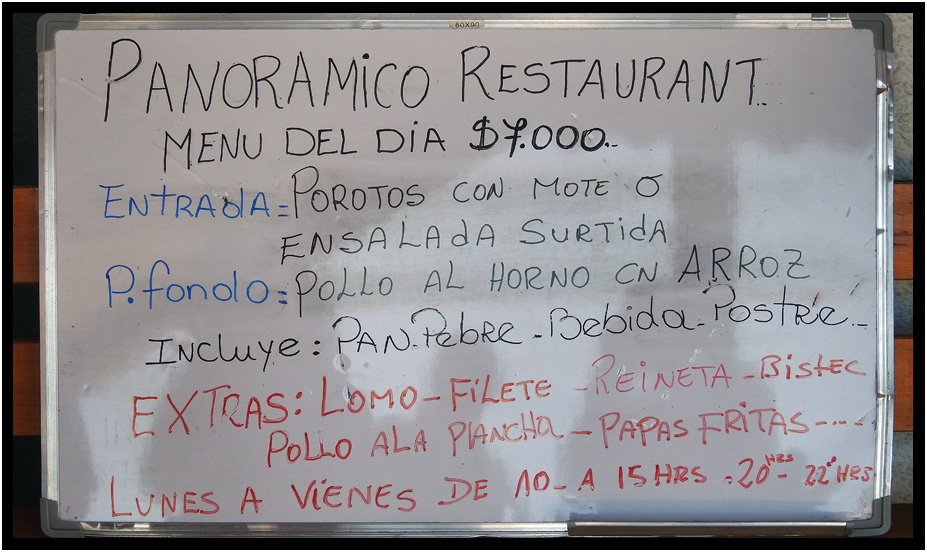 60X90
PANORAMICO RESTAURANT..
MENU DEL DIA $7.000.-
ENTRADA = POROTOS CON MOTE O
ENSALADA SURTIDA
P. fondo: = POLLO AL HORNO CN ARROZ
INCluye: PAN-Pebre-Bebida-Postre.-
EXTRAS: LOMO-FILETE-REINETA-BISTEC
POLLO ALA PLANCHA-PAPAS FRITAS----
LUNES A VIENES DE 10- A 15 HRS.20HRS-22°HRS